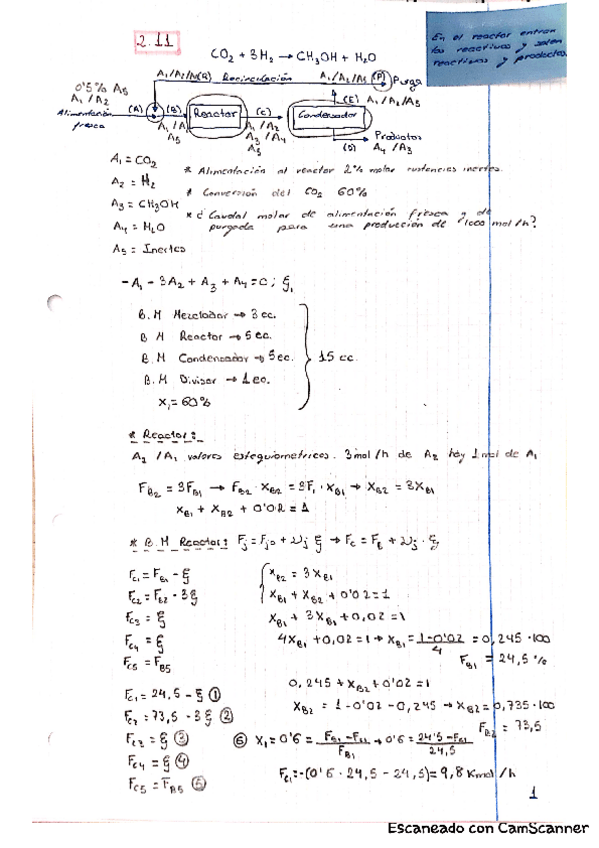 2.11
En el reactor entran
los reactivos y salen
reactivos y productos.
CO2 + 3H2 → CH3OH + H2O
A1/A2/A5(R) Recirculación A1/A2/A5 (P) Purga
0'5% A5
A1/A2
(E) A1/A2/A5
Alimentación (A) (B) Reactor (C) Condensador
fresca
A1/A2
A5
A1/A2
A3/A4
A5
(D) Productos
A4/A3
A1 = CO2
A2 = H2
A3 = CH3OH
A4 = H2O
A5 = Inertes
* Alimentación al reactor 2% molar sustancias inertes.
* Conversión del CO2 60%
* ¿ Caudal molar de alimentación fresca y de
purgada para una producción de 1000 mol/h?
-A1 - 3A2 + A3 + A4 = 0 ; ξ1
B.M Mezclador → 3 ec.
B M Reactor → 5 ec.
B.M Condensador → 5 ec.
B.M Divisor → 1 ec.
X1 = 60%
15 ec.
* Reactor:
A2/A1 valores estequiometricos. 3 mol/h de A2 hay 1 mol de A1
FB2 = 3FB1 → FB2 · XB2 = 3F1 · XB1 → XB2 = 3XB1
XB1 + XB2 + 0'02 = 1
* B.M Reactor: Fj = Fj0 + νj ξ → FC = FB + νj · ξ
FC1 = FB1 - ξ
FC2 = FB2 - 3ξ
FC3 = ξ
FC4 = ξ
FC5 = FB5
XB2 = 3XB1
XB1 + XB2 + 0'02 = 1
XB1 + 3XB1 + 0,02 = 1
4XB1 + 0,02 = 1 → XB1 = 1-0'02 / 4 = 0,245 · 100
FB1 = 24,5 %
0,245 + XB2 + 0'02 = 1
XB2 = 1 - 0'02 - 0,245 → XB2 = 0,735 · 100
FB2 = 73,5
FC1 = 24,5 - ξ ①
FC2 = 73,5 - 3ξ ②
FC3 = ξ ③
FC4 = ξ ④
FC5 = FB5 ⑤
⑥ X1 = 0'6 = FB1 - FC1 / FB1 → 0'6 = 24'5 - FC1 / 24,5
FC1 = -(0'6 · 24,5 - 24,5) = 9,8 Kmol/h
1
Escaneado con CamScanner